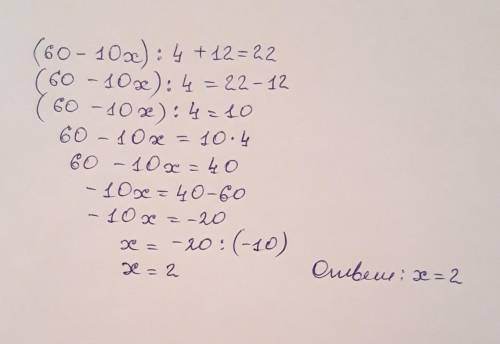 (60 - 10x) : 4 + 12 = 22
(60 - 10x) : 4 = 22 - 12
(60 - 10x) : 4 = 10
60 - 10x = 10 · 4
60 - 10x = 40
- 10x = 40 - 60
- 10x = -20
x = -20 : (-10)
x = 2
Ответ: x = 2